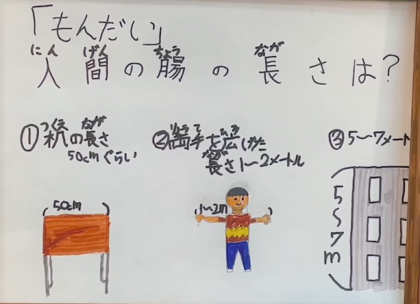 「もんだい」
にん げん ちょう なが
人間の腸の長さは?
①机の長さ
つくえ なが
50cmぐらい
②両手を広げた
長さ1〜2メートル
なが
③5〜7メート
50cm
1〜2m
5〜7m